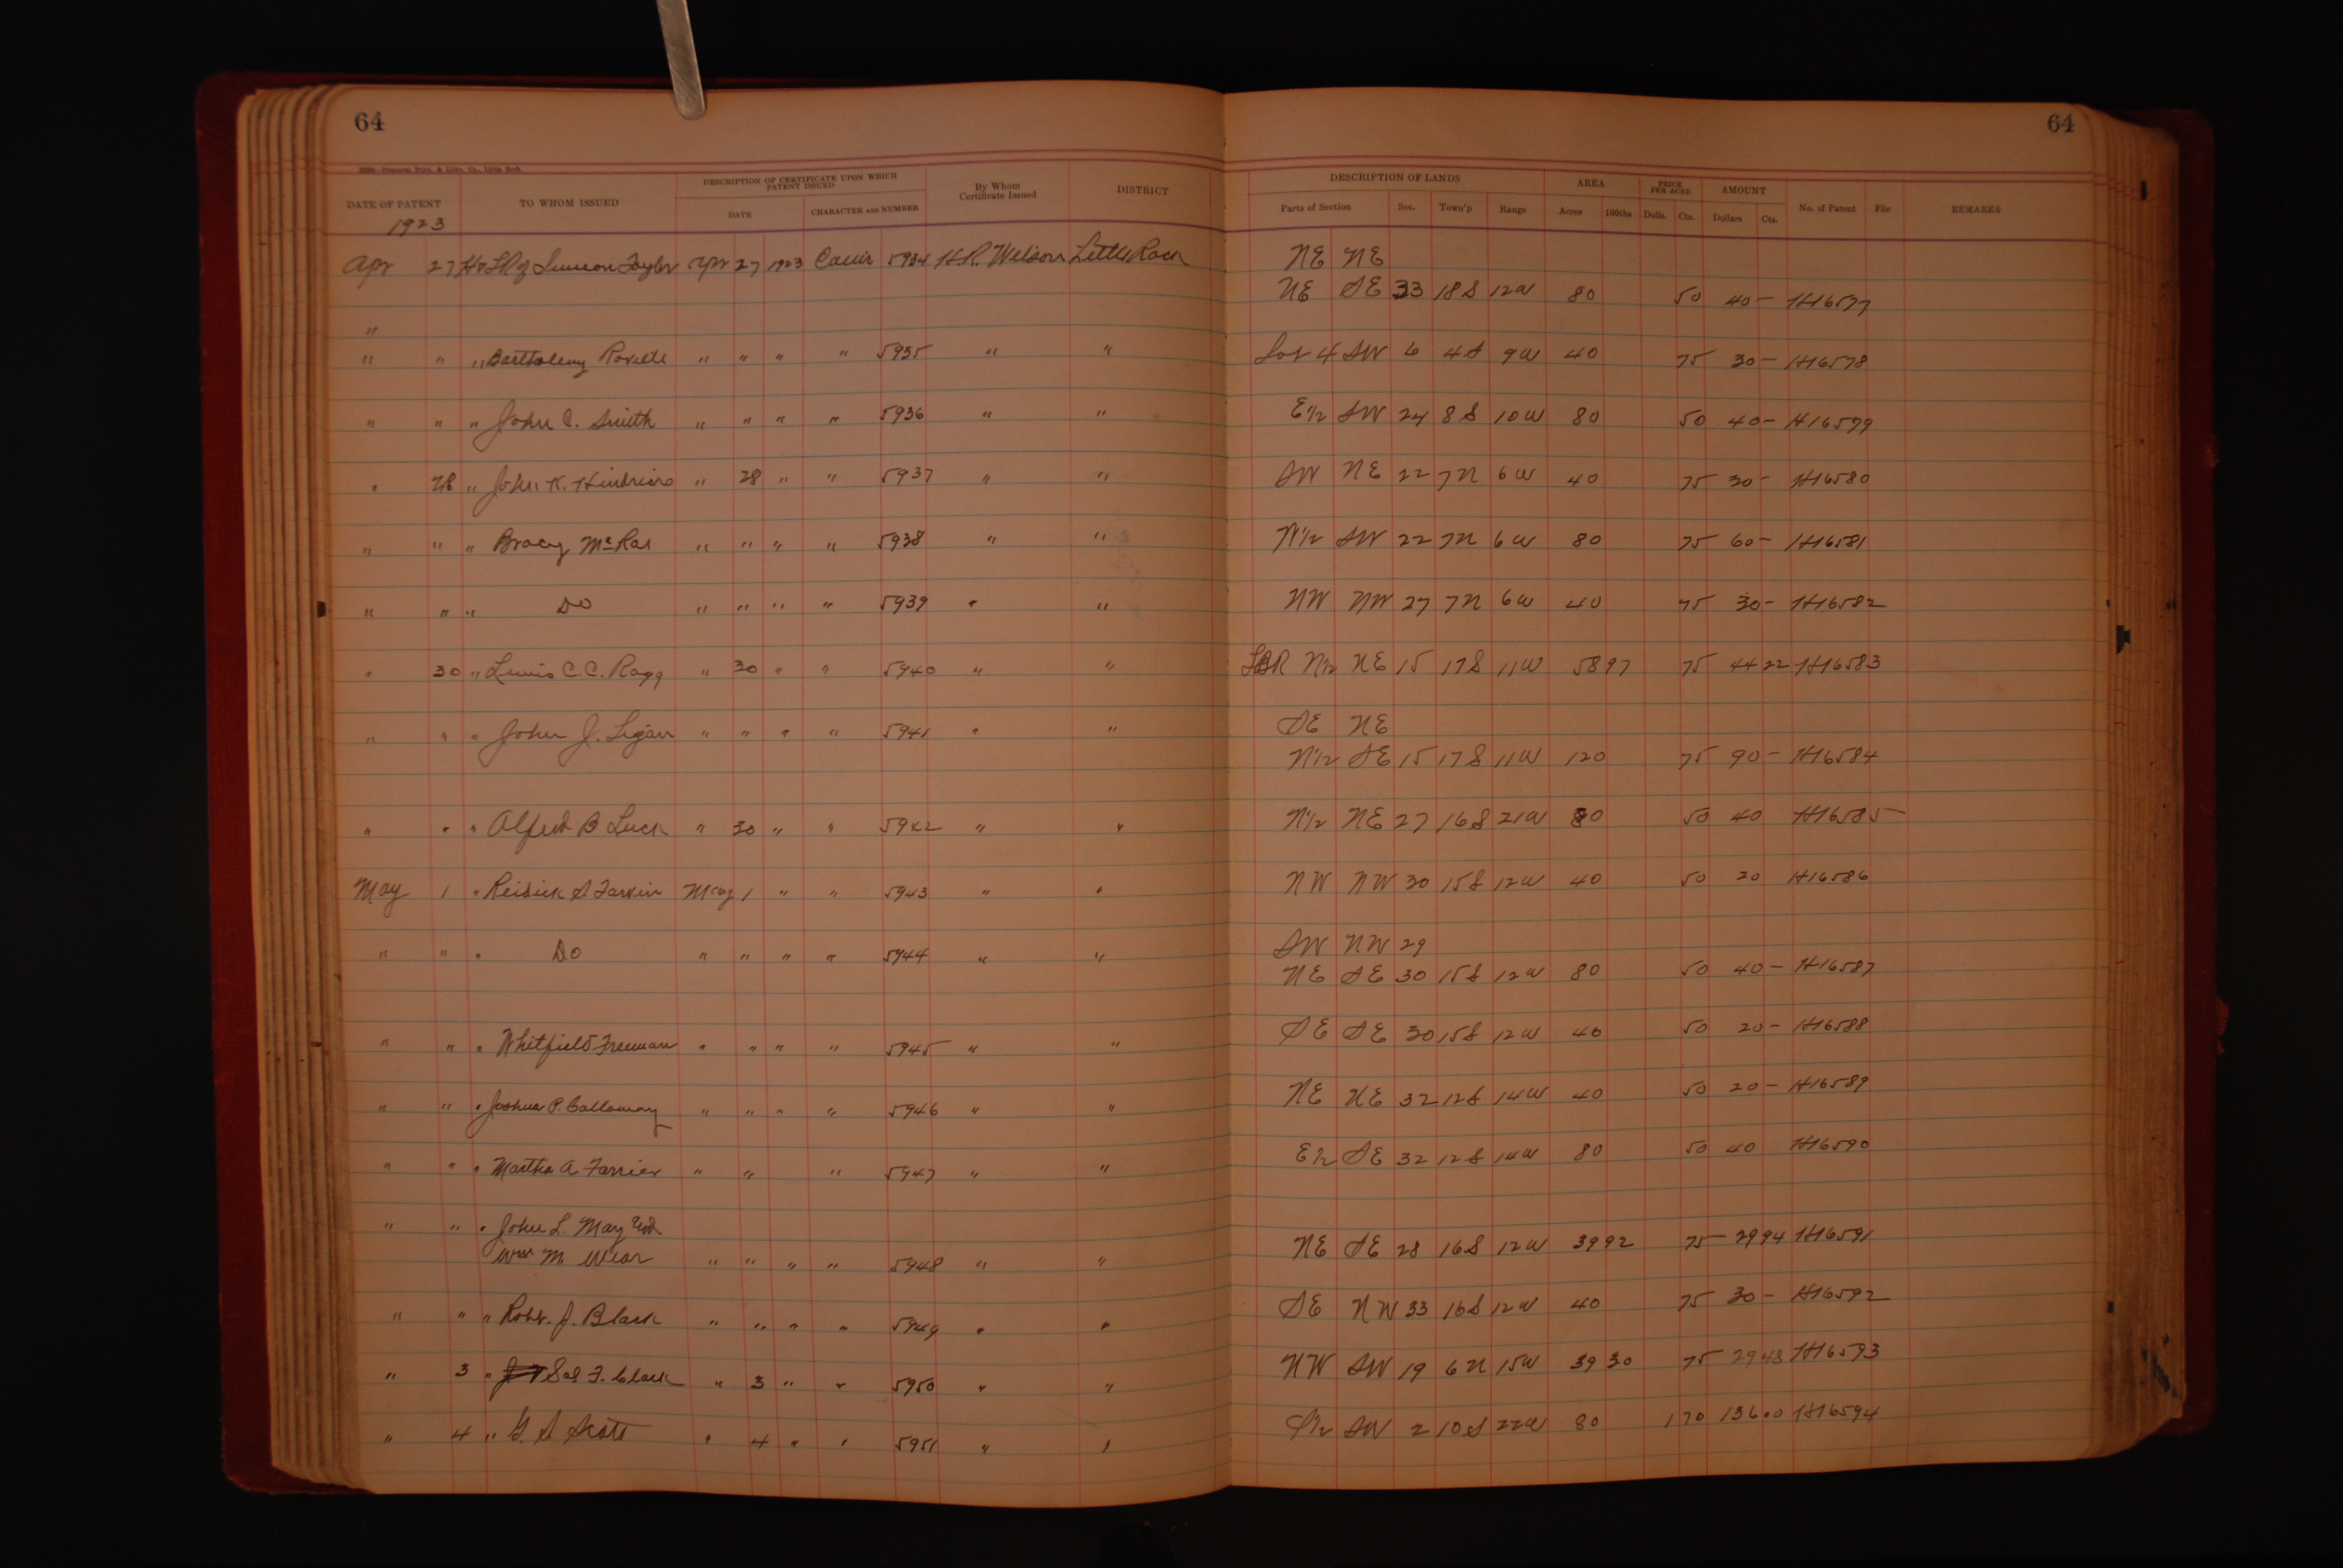 64
64
DESCRIPTION OF CERTIFICATE UPON WHICH PATENT ISSUED
DATE OF PATENT TO WHOM ISSUED DATE CHARACTER AND NUMBER By Whom Certificate Issued DISTRICT
DESCRIPTION OF LANDS AREA PRICE PER ACRE AMOUNT
Parts of Section Sec. Town'p Range Acres 100ths Dolls. Cts. Dollars Cts. No. of Patent File REMARKS
1923
Apr 27 Apr 27 1923 5934 H.R. Wilson Little Rock NE NE
NE SE 33 18S 12W 80 50 40 - H16577
"
" " " " " " " 5935 " " Lot 4 SW 6 4S 9W 40 75 30 - H16578
" " " John C. Smith " " " " 5936 " " E1/2 SW 24 8S 10W 80 50 40 - H16579
" 28 " John K. " 28 " " 5937 " " SW NE 22 7N 6W 40 75 30 - H16580
" " " Bracy McRae " " " " 5938 " " N1/2 SW 22 7N 6W 80 75 60 - H16581
" " " Do " " " " 5939 " " NW NW 27 7N 6W 40 75 30 - H16582
" 30 " Lewis C.C. Ragg " 30 " " 5940 " " N1/2 NE 15 17S 11W 58 97 75 44 22 H16583
" " " John J. " " " " 5941 " " SE NE
N1/2 SE 15 17S 11W 120 75 90 - H16584
" " " Alfred B Luck " 30 " " 5942 " " N1/2 NE 27 16S 21W 80 50 40 H16585
May 1 " May 1 " " 5943 " " NW NW 30 15S 12W 40 50 20 H16586
" " " Do " " " " 5944 " " SW NW 29
NE SE 30 15S 12W 80 50 40 - H16587
" " " Whitfield Freeman " " " " 5945 " " SE SE 30 15S 12W 40 50 20 - H16588
" " " Joshua P. Calloway " " " " 5946 " " NE NE 32 12S 14W 40 50 20 - H16589
" " " Martha A Farrier " " " 5947 " " E1/2 SE 32 12S 14W 80 50 40 H16590
" " " John L. May and
Wm M Wear " " " " 5948 " " NE SE 28 16S 12W 39 92 75 29 94 H16591
" " " Robt. J. Black " " " " 5949 " " SE NW 33 16S 12W 40 75 30 - H16592
" 3 " Sol F. Clark " 3 " " 5950 " " NW SW 19 6N 15W 39 30 75 29 48 H16593
" 4 " G. S Scott " 4 " " 5951 " " S1/2 SW 2 10S 22W 80 1 70 136 00 H16594